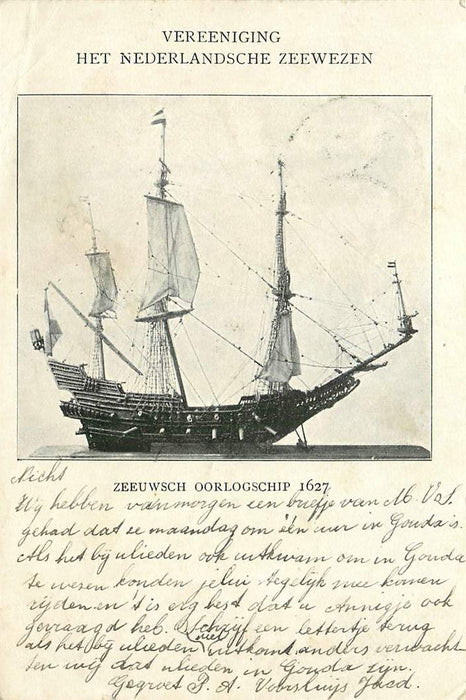 VEREENIGING
HET NEDERLANDSCHE ZEEWEZEN
ZEEUWSCH OORLOGSCHIP 1627
Nicht
Wij hebben van morgen een briefje van M. V.
gehad dat ze maandag om één uur in Gouda is.
Als het bij ulieden ook uitkwam om in Gouda
te wezen konden jelui tegelijk mee komen
rijden en 't is erg best dat u Annigje ook
gevraagd heb. Schrijf een lettertje terug
als het bij ulieden niet uitkomt anders verwach-
ten wij dat ulieden in Gouda zijn.
Gegroet P. A.